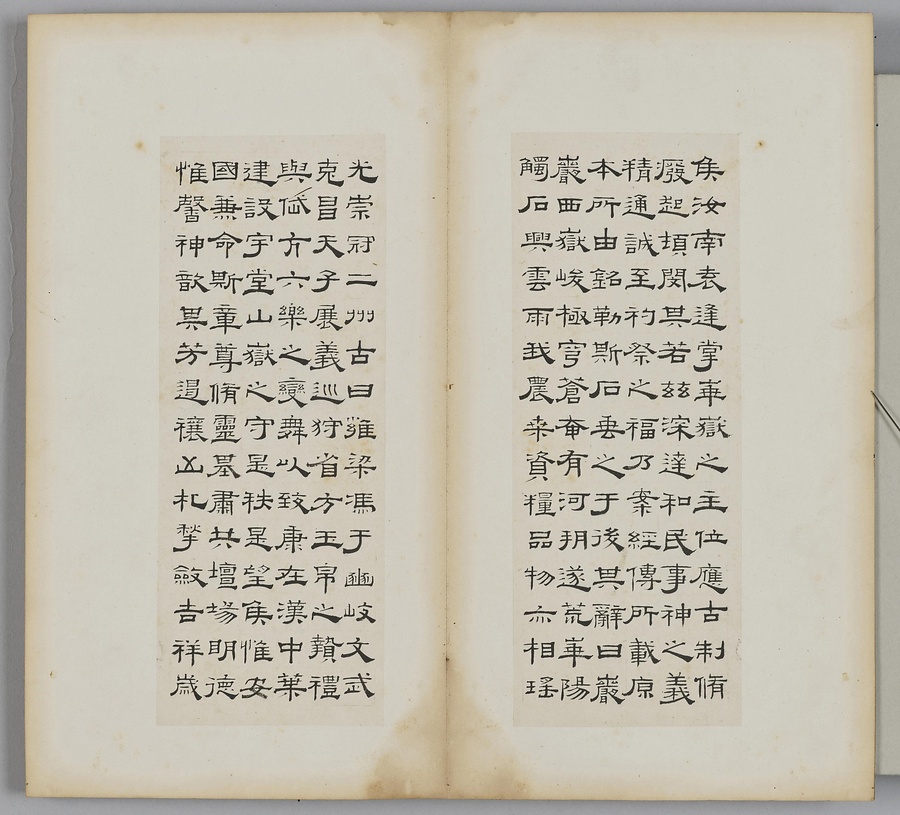 侯汝南袁逢掌華嶽之主位應古制脩
廢起頓閔其若茲深達和民事神之義
精通誠至礿祭之福乃案經傳所載原
本所由銘勒斯石垂之于後其辭曰巖
巖西嶽峻極穹蒼奄有河朔遂荒華陽
觸石興雲雨我農桑資糧品物亦相瑤
光崇冠二州古曰雍梁馮于豳岐文武
克昌天子展義巡狩省方玉帛之贄禮
與岱亢六樂之變舞以致康在漢中葉
建設宇堂山嶽之守是秩是望侯惟安
國兼命斯章尊脩靈基肅共壇場明德
惟馨神歆其芳遏禳凶札揫斂吉祥歲